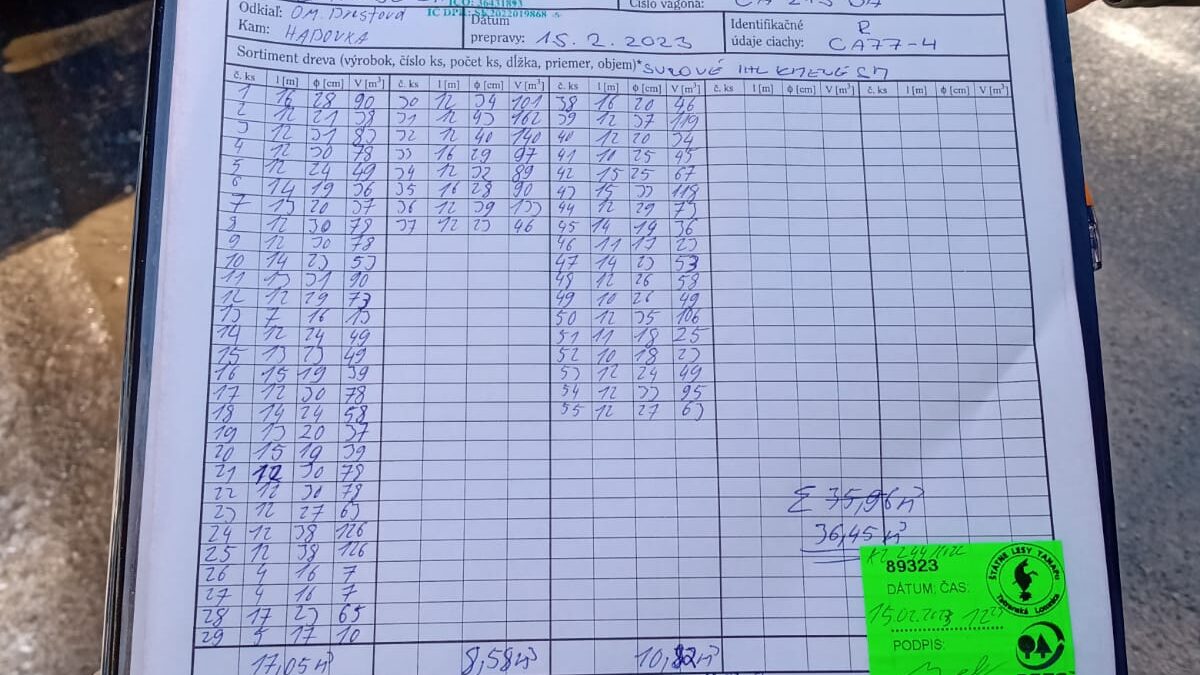 IČO: 36431893
Číslo vagóna:
Odkiaľ: OM. Drustova
IČ DPH: SK2022019868
Kam: HADOVKA
Dátum
prepravy: 15.2.2023
Identifikačné R
údaje ciachy: CA77-4
Sortiment dreva (výrobok, číslo ks, počet ks, dĺžka, priemer, objem)* SUROVÉ IHL KMENE SM
č. ks l [m] ϕ [cm] V [m³] č. ks l [m] ϕ [cm] V [m³] č. ks l [m] ϕ [cm] V [m³] č. ks l [m] ϕ [cm] V [m³] č. ks l [m] ϕ [cm] V [m³]
1 16 28 90 30 12 34 101 38 16 20 46
2 12 21 38 31 12 43 162 39 12 37 119
3 12 31 83 32 12 40 140 40 12 20 34
4 12 30 78 33 16 29 97 41 10 25 45
5 12 24 49 34 12 32 89 42 15 25 67
6 14 19 36 35 16 28 90 43 15 33 118
7 13 20 37 36 12 39 133 44 12 29 73
8 12 30 78 37 12 23 46 45 14 19 36
9 12 30 78 46 11 17 23
10 14 23 53 47 14 23 53
11 13 31 90 48 12 26 58
12 12 29 73 49 10 26 49
13 7 16 13 50 12 35 106
14 12 24 49 51 11 18 25
15 13 23 49 52 10 18 23
16 15 19 39 53 12 24 49
17 12 30 78 54 12 33 95
18 14 24 58 55 12 27 63
19 13 20 37
20 15 19 39
21 12 30 78
22 12 30 78
23 12 27 63
24 12 38 126
25 12 38 126
26 4 16 7
27 4 16 7
28 17 23 65
29 5 17 10
Σ 35,96 m³
36,45 m³
17,05 m³ 8,58 m³ 10,82 m³
89323
DÁTUM; ČAS:
15.02.2023 12
PODPIS:
ŠTÁTNE LESY TANAPU
Tatranská Lomnica